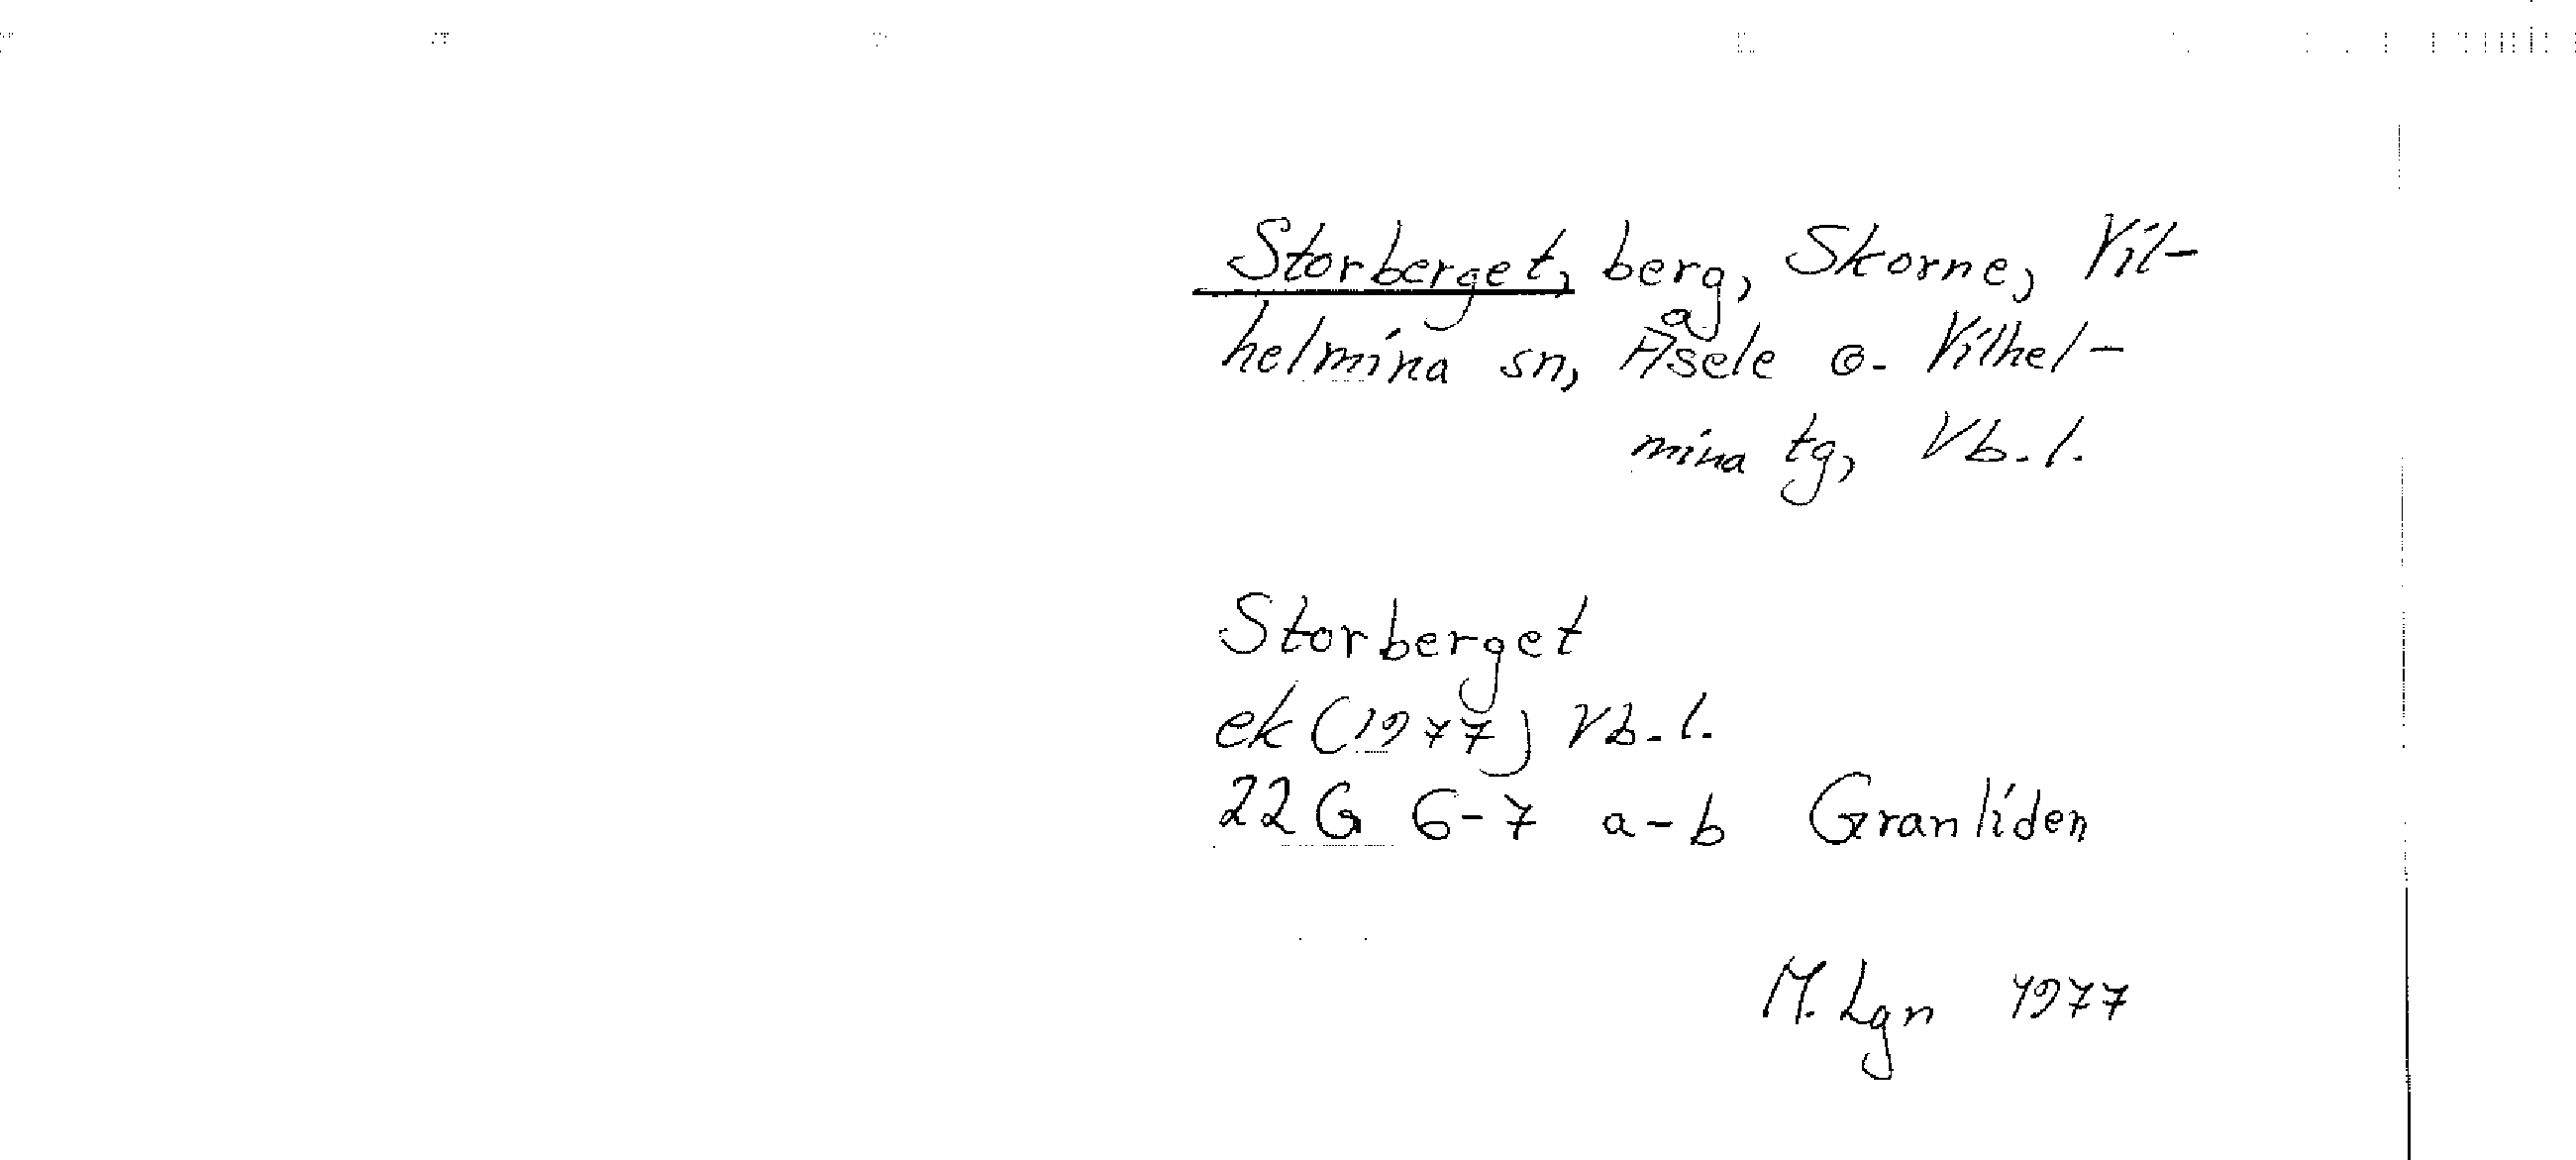 Storberget, berg, Skorne, Vil-
helmina sn, Åsele o. Vilhel-
mina tg, Vb. l.
Storberget
ek (1977) Vb. l.
22 G 6-7 a-b Granliden
M. Lgn 1977